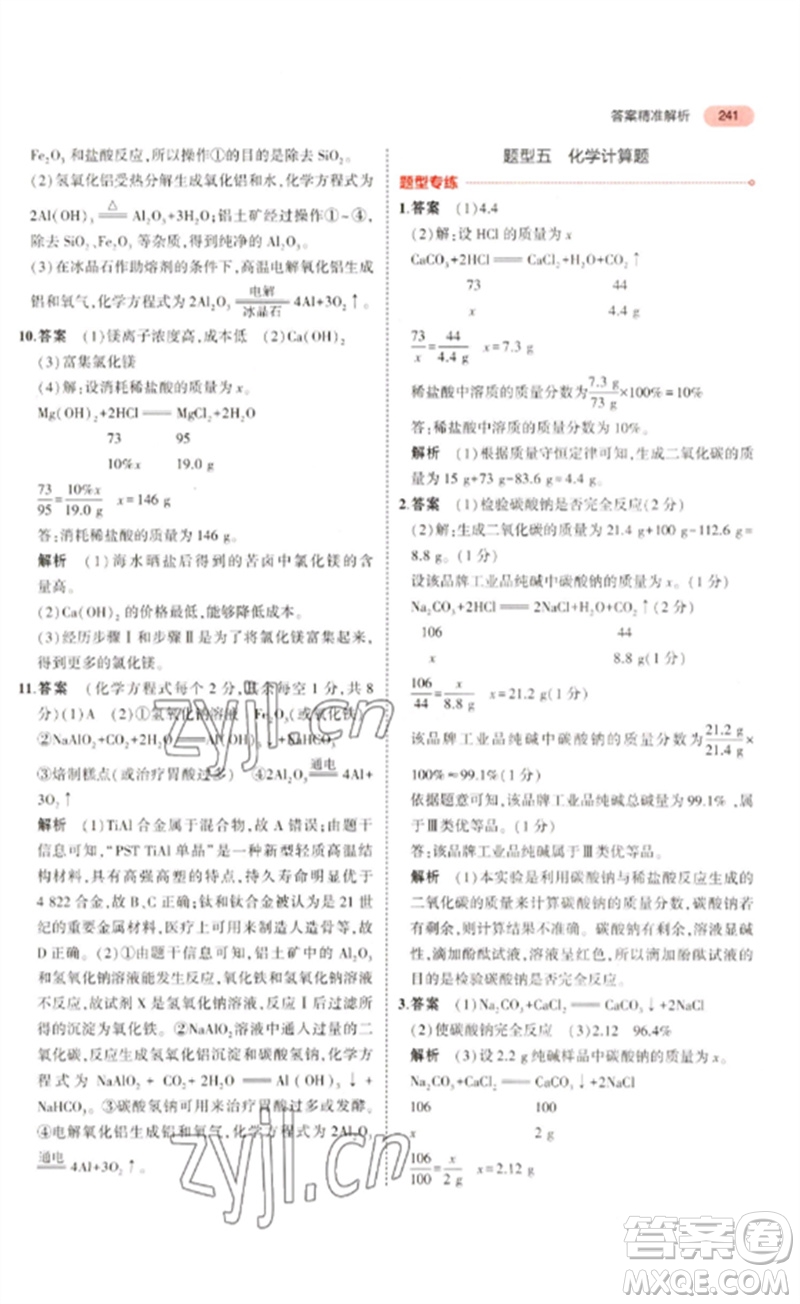 答案精准解析 241
Fe₂O₃ 和盐酸反应，所以操作①的目的是除去 SiO₂。
(2)氢氧化铝受热分解生成氧化铝和水，化学方程式为
△
2Al(OH)₃ ══ Al₂O₃+3H₂O;铝土矿经过操作①~④，
除去 SiO₂、Fe₂O₃ 等杂质，得到纯净的 Al₂O₃。
(3)在冰晶石作助熔剂的条件下，高温电解氧化铝生成
电解
铝和氧气，化学方程式为 2Al₂O₃ ══ 4Al+3O₂↑。
冰晶石
10.答案 (1)镁离子浓度高，成本低 (2)Ca(OH)₂
(3)富集氯化镁
(4)解:设消耗稀盐酸的质量为 x。
Mg(OH)₂+2HCl ══ MgCl₂+2H₂O
73 95
10%x 19.0 g
73/95=10%x/19.0 g x=146 g
答:消耗稀盐酸的质量为 146 g。
解析 (1)海水晒盐后得到的苦卤中氯化镁的含
量高。
(2)Ca(OH)₂ 的价格最低，能降低成本。
(3)经历步骤Ⅰ和步骤Ⅱ是为了将氯化镁富集起来，
得到更多的氯化镁。
11.答案 (化学方程式每个 2 分，其余每空 1 分，共 8
分)(1)A (2)①氢氧化钠溶液 Fe₂O₃(或氧化铁)
②NaAlO₂+CO₂+2H₂O ══ Al(OH)₃↓+NaHCO₃
③焙制糕点(或治疗胃酸过多) ④2Al₂O₃ ══通电 4Al+
3O₂↑
解析 (1)TiAl 合金属于混合物，故 A 错误;由题干
可知，“PST TiAl 单晶”是一种新型轻质高温结
构材料，具有高强高塑的特点，持久寿命大于
4 822 合金 1~2 个数量级;钛和钛合金是 21 世
纪的重要金属材料，医疗上可制造人造骨等，故
D 正确。(2)①由题干可知，铝土矿中的 Al₂O₃
和氢氧化钠溶液能发生反应，氧化铁和氢氧化钠溶液
不反应，故试剂 X 是氢氧化钠溶液;步骤Ⅰ中得到
的沉淀为氧化铁。②NaAlO₂ 溶液中通入过量的二
氧化碳，反应生成氢氧化铝沉淀和碳酸氢钠，化学方
程式为 NaAlO₂ + CO₂ + 2H₂O ══ Al(OH)₃↓ +
NaHCO₃。③碳酸氢钠可用来治疗胃酸过多或发酵。
④电解氧化铝生成铝和氧气，化学方程式为 2Al₂O₃
══通电 4Al+3O₂↑。
题型五 化学计算题
题型专练
1.答案 (1)4.4
(2)解:设 HCl 的质量为 x
CaCO₃+2HCl ══ CaCl₂+H₂O+CO₂↑
73 44
x 4.4 g
73/x=44/4.4 g x=7.3 g
稀盐酸中溶质的质量分数为 7.3 g/73 g×100%=10%
答:稀盐酸中溶质的质量分数为 10%。
解析 (1)根据质量守恒定律可知，生成二氧化碳的
质量为 15 g+73 g-83.6 g=4.4 g。
2.答案 (1)检验碳酸钠是否完全反应(2 分)
(2)解:生成二氧化碳的质量为 21.4 g+100 g-112.6 g=
8.8 g(1 分)
设该品牌工业品纯碱中碳酸钠的质量为 x。
Na₂CO₃+2HCl ══ 2NaCl+H₂O+CO₂↑(2 分)
106 44
x 8.8 g(1 分)
106/44=x/8.8 g x=21.2 g(1 分)
该品牌工业品纯碱中碳酸钠的质量分数为 21.2 g/21.4 g×
100%≈99.1%(1 分)
依据题意可知，该品牌工业品纯碱总碱量为 99.1%，
属于Ⅲ类优等品。(1 分)
答:该品牌工业品纯碱属于Ⅲ类优等品。
解析 (1)本实验是利用碳酸钠与稀盐酸反应生成的
二氧化碳的质量来计算碳酸钠的质量分数，碳酸钠若
有剩余，则计算结果不准确。碳酸钠有剩余，溶液显碱
性，滴加酚酞试液，溶液呈红色，所以滴加酚酞试液的目
的是检验碳酸钠是否完全反应。
3.答案 (1)Na₂CO₃+CaCl₂ ══ CaCO₃↓+2NaCl
(2)使碳酸钠完全反应 (3)2.12 96.4%
解析 (3)设 2.2 g 纯碱样品中碳酸钠的质量为 x。
Na₂CO₃+CaCl₂ ══ CaCO₃↓+2NaCl
106 100
x 2 g
106/100=x/2 g x=2.12 g
zyjl.cn
zyjl.cn
答案圈
MXQE.COM